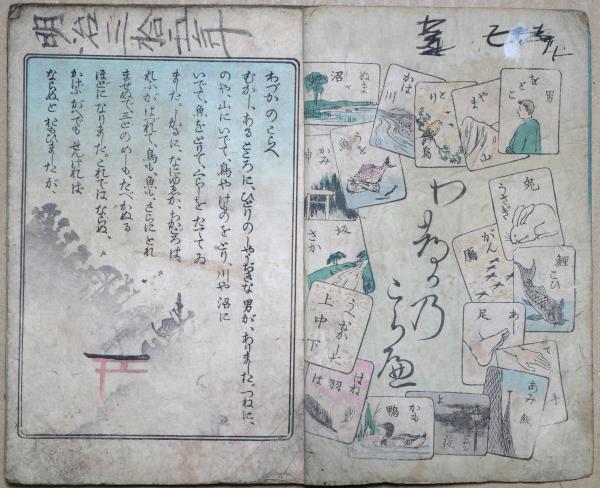 明治三拾五年
わづかのこらへ
むかし、あるところに、ひとりの しやうぢきな 男が、ありました。つねに、
のや、山にいで、鳥や けものをとり、川や 沼に
いでて、魚をとりて、くらしを たてて ゐ
ました、
れふがはづれて、鳥も、魚も、さらにとれ
ませぬで、三どの めしも、たべかぬる
ほどに なりました。これでは ならぬ、
かせがでも せんければ
ならぬと おもひましたが、
わづか乃
こらへ
をとこ 男
やま 山
とり 鳥
かは 川
ぬま 沼
うを 魚
かみ 神
さか 坂
うへ なか した
上 中 下
はね 羽
は
かも 鴨
よ 夜
あみ 網
て 手
あし 足
こひ 鯉
がん 鴈
うさぎ 兎